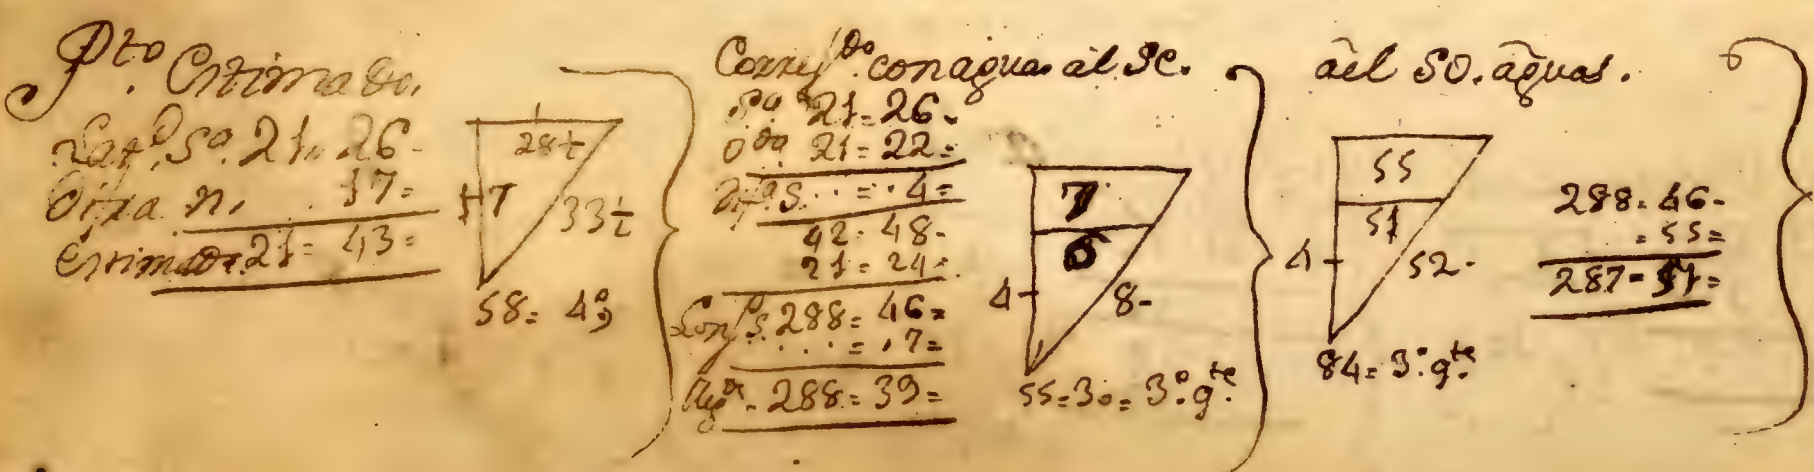 Pto. Estimado.
Latd. Sa. 21 = 26 =
Difxa. n. . . 17 =
Estimada. 21 = 43 =
28½
17
33½
58 = 4o
Correxdo. con aguas al SE.
Sa. 21 = 26 =
Oda. 21 = 22 =
Difa. S. . . = . 4 =
42 = 48 =
21 = 24 =
Lonxs. 288 = 46 =
. . . = . 7 =
288 = 39 =
7
6
4
8 =
55 = 30 = 3o. qte.
ael SO. aguas.
55
51
4
52 =
84 = 3o. qte.
288 = 46 =
= 55 =
287 = 51 =